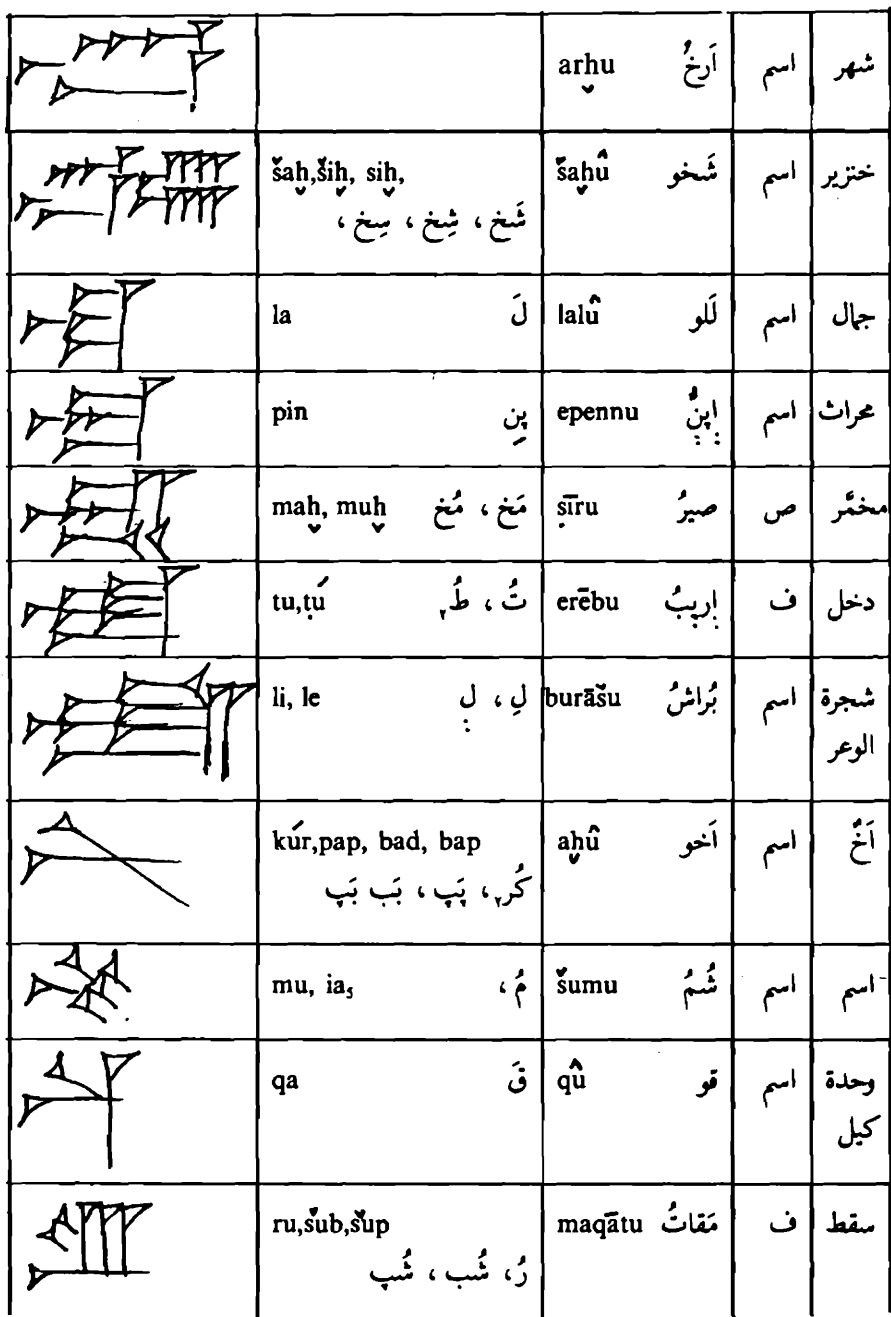 arḫu اَرخُ اسم شهر
šaḫ,šiḫ, siḫ, šaḫû شَخو اسم خنزير
شَخ ، شِخ ، سِخ ،
la لَ lalû لَلو اسم جمال
pin پِن epennu اِپنُّ اسم محراث
maḫ, muḫ مَخ ، مُخ ṣīru صيرُ ص مخمَّر
tu,ṭú تُ ، طُ₂ erēbu اِريبُ ف دخل
li, le لِ ، لِ burāšu بُراشُ اسم شجرة
الوعر
kúr,pap, bad, bap aḫû اَخو اسم اَخٌ
كُر₂، پَپ ، بَب بَپ
mu, ia₅ مُ ، šumu شُمُ اسم اسم
qa قَ qû قو اسم وحدة
كيل
ru,šub,šup maqātu مَقاتُ ف سقط
رُ، شُب ، شُپ